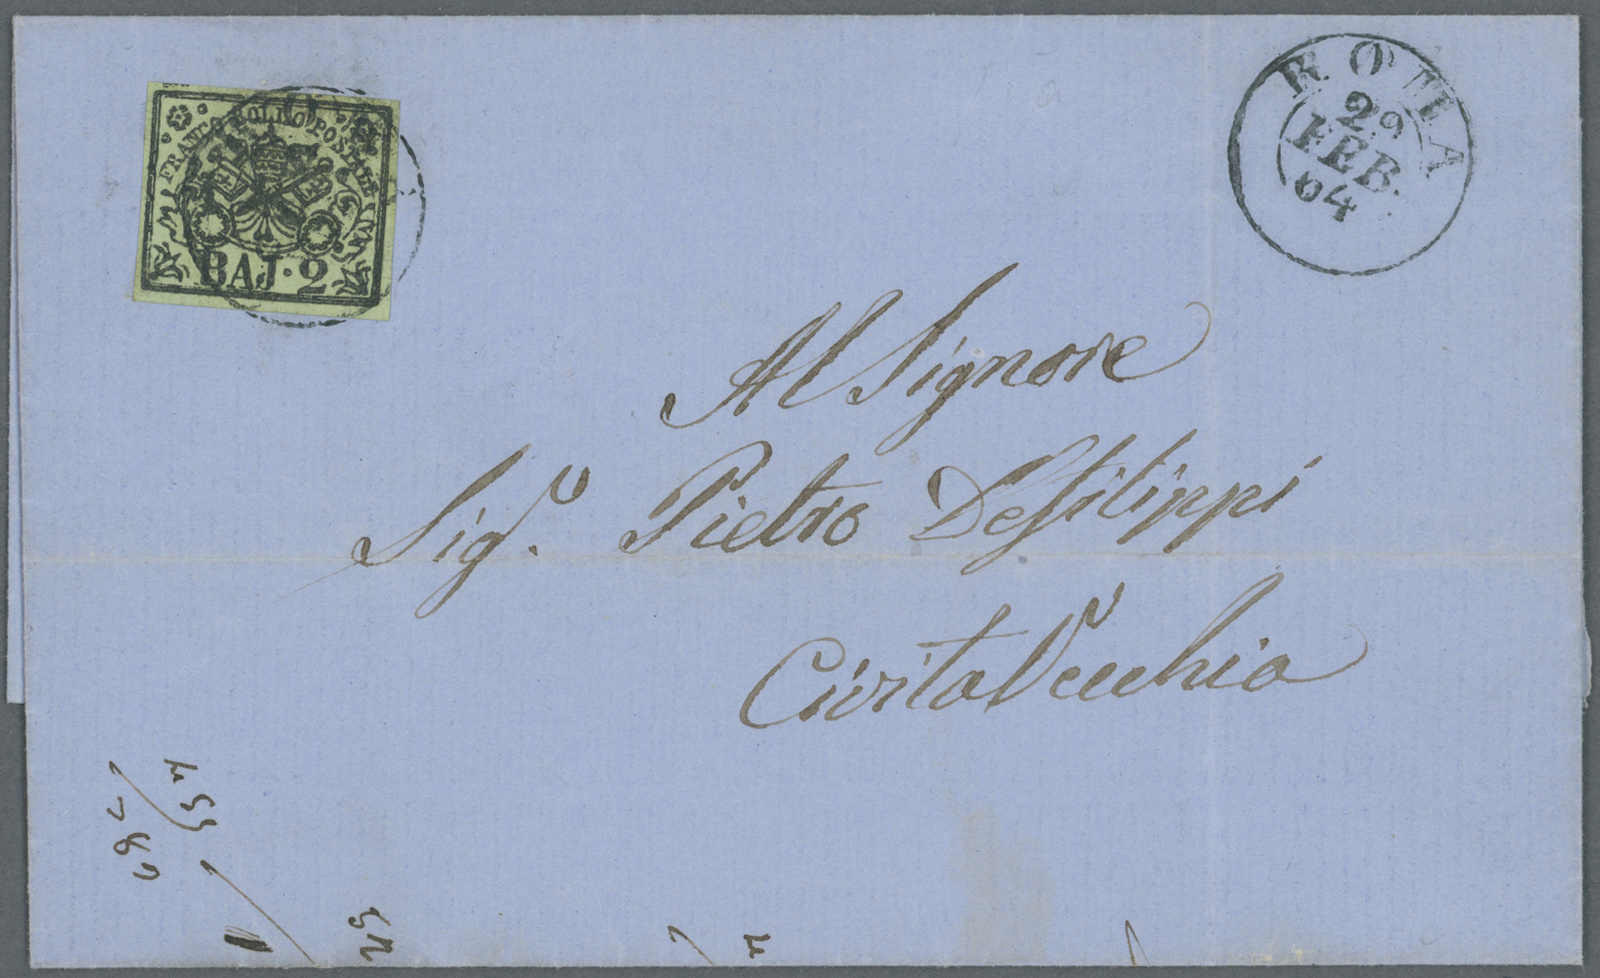 FRANCO BOLLO POSTALE
BAJ·2
ROMA
29
FEB.
64
Al Signore
Sig.r Pietro Defilippi
CivitaVecchia